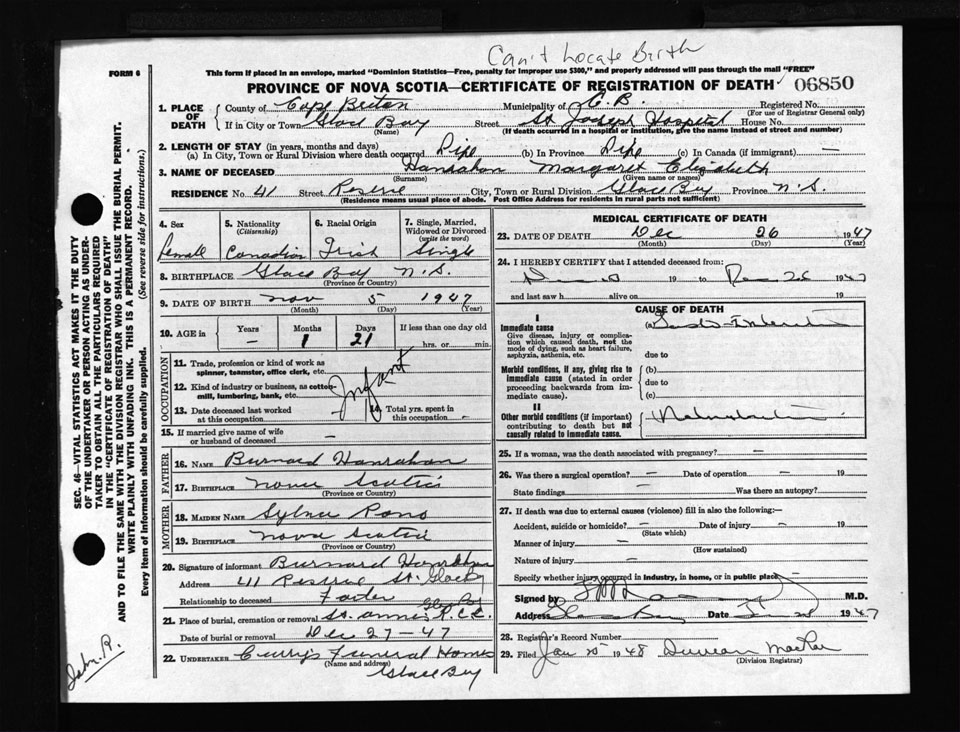 Can't Locate Birth
FORM 6
This form if placed in an envelope, marked "Dominion Statistics—Free, penalty for improper use $300," and properly addressed will pass through the mail "FREE"
PROVINCE OF NOVA SCOTIA—CERTIFICATE OF REGISTRATION OF DEATH 06850
1. PLACE OF DEATH County of Cape Breton Municipality of C.B. Registered No.
(For use of Registrar General only)
If in City or Town Glace Bay Street St Joseph Hospital House No.
(Name) (If death occurred in a hospital or institution, give the name instead of street and number)
2. LENGTH OF STAY (in years, months and days)
(a) In City, Town or Rural Division where death occurred Life (b) In Province Life (c) In Canada (if immigrant) —
3. NAME OF DECEASED Hanrahan Margaret Elizabeth
(Surname) (Given name or names)
RESIDENCE No 41 Street City, Town or Rural Division Glace Bay Province N.S.
(Residence means usual place of abode. Post Office Address for residents in rural parts not sufficient)
4. Sex 5. Nationality (Citizenship) 6. Racial Origin 7. Single, Married, Widowed or Divorced (write the word)
Female Canadian Irish Single
8. BIRTHPLACE Glace Bay N.S.
(Province or Country)
9. DATE OF BIRTH Nov 5 1947
(Month) (Day) (Year)
10. AGE in Years Months Days If less than one day old
— 1 21 hrs. or min.
OCCUPATION
11. Trade, profession or kind of work as spinner, teamster, office clerk, etc.
12. Kind of industry or business, as cotton-mill, lumbering, bank, etc.
Infant
13. Date deceased last worked at this occupation 14. Total yrs. spent in this occupation -
15. If married give name of wife or husband of deceased —
FATHER
16. NAME Burnard Hanrahan
17. BIRTHPLACE Nova Scotia
(Province or Country)
MOTHER
18. MAIDEN NAME
19. BIRTHPLACE Nova Scotia
(Province or Country)
20. Signature of informant Burnard Hanrahan
Address 41 St. Glace Bay
Relationship to deceased
21. Place of burial, cremation or removal St. Anns
Date of burial or removal Dec 27-47
22. UNDERTAKER Curry's Funeral Home
(Name and address)
Glace Bay
MEDICAL CERTIFICATE OF DEATH
23. DATE OF DEATH Dec 26 1947
(Month) (Day) (Year)
24. I HEREBY CERTIFY that I attended deceased from:
19 to Dec 26 1947
and last saw h alive on 19
CAUSE OF DEATH
I
Immediate cause (a)
Give disease, injury or complication which caused death, not the mode of dying, such as heart failure, asphyxia, asthenia, etc.
due to
Morbid conditions, if any, giving rise to immediate cause (stated in order proceeding backwards from immediate cause). (b)
due to
(c)
II
Other morbid conditions (if important) contributing to death but not causally related to immediate cause.
25. If a woman, was the death associated with pregnancy? —
26. Was there a surgical operation? — Date of operation — 19
State findings Was there an autopsy?
27. If death was due to external causes (violence) fill in also the following:—
Accident, suicide or homicide? — Date of injury — 19
(State which)
Manner of injury —
(How sustained)
Nature of injury —
Specify whether injury occurred in industry, in home, or in public place
Signed by M.D.
Address Glace Bay Date 1947
28. Registrar's Record Number
29. Filed Jan 1948 Duncan MacRae
(Division Registrar)
SEC. 46—VITAL STATISTICS ACT MAKES IT THE DUTY
OF THE UNDERTAKER OR PERSON ACTING AS UNDER-
TAKER TO OBTAIN ALL THE PARTICULARS REQUIRED
IN THE "CERTIFICATE OF REGISTRATION OF DEATH"
AND TO FILE THE SAME WITH THE DIVISION REGISTRAR WHO SHALL ISSUE THE BURIAL PERMIT.
WRITE PLAINLY WITH UNFADING INK. THIS IS A PERMANENT RECORD.
Every item of information should be carefully supplied. (See reverse side for instructions.)
John. R.